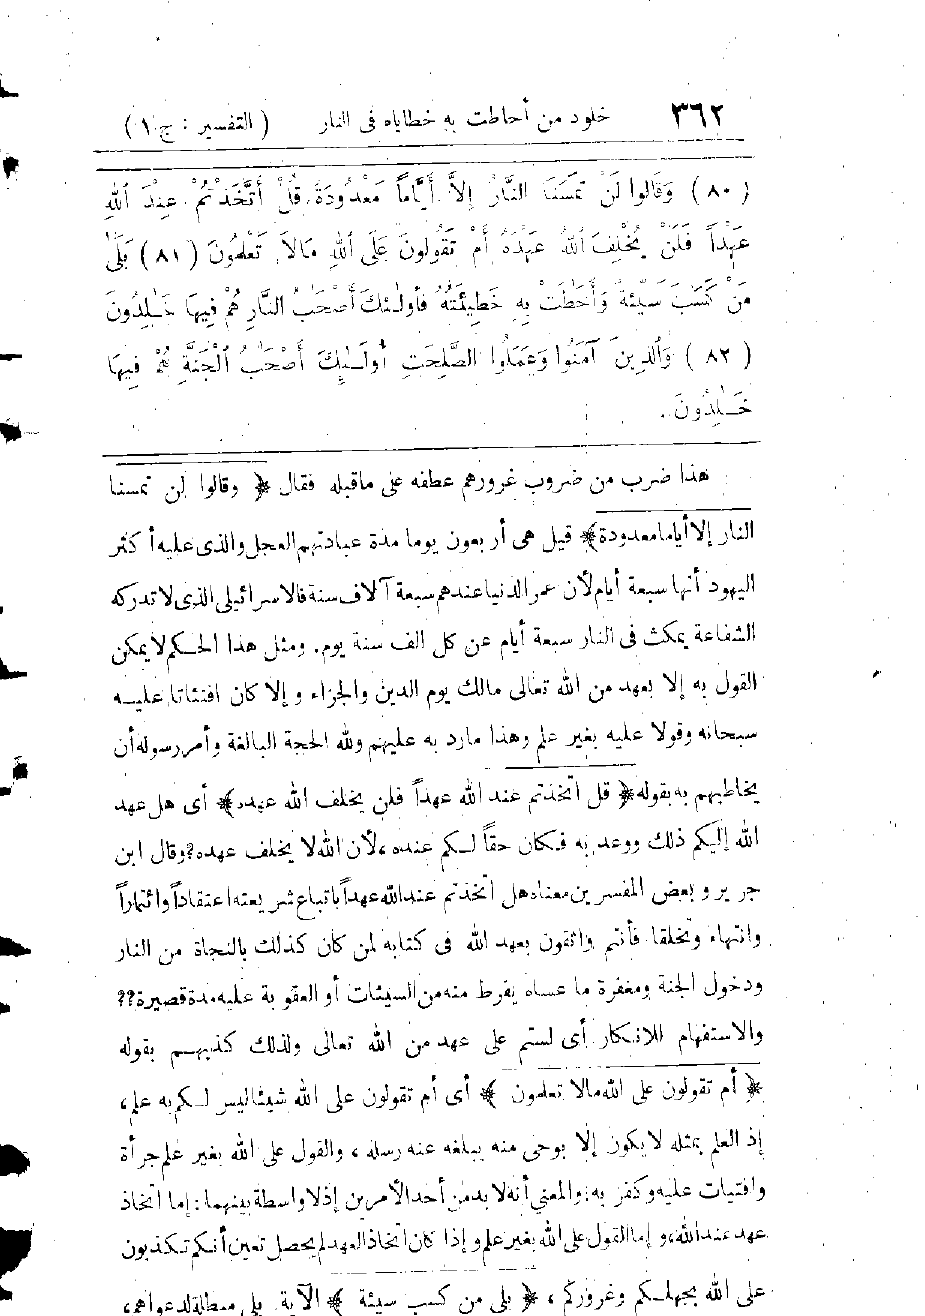 ٣٦٢ خلود من أحاطت به خطاياه فى النار ( التفسير : ج ١ )
( ٨٠ ) وَقَالوا لَنْ تمَسَّنَا النَّارُ إِلاَّ أَيَّاماً مَعْدُودَةً قُلْ أَتَّخَذْتُمْ عِنْدَ اللهِ
عَهْداً فَلَنْ يُخْلِفَ اللهُ عَهْدَهُ أَمْ تَقُولونَ عَلَى اللهِ مَالاَ تَعْلمُونَ ( ٨١ ) بَلَى
مَنْ كَسَبَ سَيِّئَةً وَأَحَطَتْ بِهِ خَطِيئَتُهُ فأولـٰئكَ أَصْحَابُ النَّارِ هُمْ فِيهَا خَـٰلِدُونَ
( ٨٢ ) وَالَّذِينَ آمَنُوا وَعَمِلُوا الصَّـٰلِحَتِ أولَـٰئِكَ أَصْحَـٰبُ الْجَنَّةِ هُمْ فِيهَا
خَـٰلِدُونَ .
هذا ضرب من ضروب غرورهم عطفه على ماقبله فقال ﴿ وقالوا لن تمسنا
النار إلا أياما معدودة﴾ قيل هى أربعون يوما مدة عبادتهم العجل والذى عليه أكثر
اليهود أنها سبعة أيام لأن عمر الدنيا عندهم سبعة آلاف سنة فالاسرائيلى الذى لا تدركه
الشفاعة يمكث فى النار سبعة أيام عن كل الف سنة يوم. ومثل هذا الحكم لا يمكن
القول به إلا بعهد من الله تعالى مالك يوم الدين والجزاء وإلا كان افتئاتا عليه
سبحانه وقولا عليه بغير علم وهذا مارد به عليهم ولله الحجة البالغة وأمر رسوله أن
يخاطبهم به بقوله ﴿ قل اتخذتم عند الله عهداً فلن يخلف الله عهده﴾ أى هل عهد
الله إليكم ذلك ووعد به فكان حقاً لكم عنده، لأن الله لا يخلف عهده؟ وقال ابن
جرير وبعض المفسرين معناه هل اتخذتم عند الله عهداً باتباع شريعته اعتقاداً وائتماراً
وانتهاء وتخلقا فأنتم واثقون بعهد الله فى كتابه لمن كان كذلك بالنجاة من النار
ودخول الجنة ومغفرة ما عساه يفرط منه من السيئات أو العقوبة عليه مدة قصيرة؟؟
والاستفهام للانكار أى لستم على عهد من الله تعالى ولذلك كذبهم بقوله
﴿ أم تقولون على الله مالا تعلمون ﴾ أى أم تقولون على الله شيئا ليس لكم به علم ،
إذ العلم بمثله لا يكون إلا بوحى منه يبلغه عنه رسله ، والقول على الله بغير علم جرأة
وافتيات عليه وكفر به: والمعني أنه لا بد من أحد الأمرين إذ لا واسطة بينهما : إما اتخاذ
عهد عند الله، وإما القول على الله بغير علم وإذا كان اتخاذ العهد لم يحصل تعين أنكم تكذبون
على الله بجهلكم وغروركم ، ﴿ بلى من كسب سيئة ﴾ الآية. بلى مبطلة لدعواهم ،